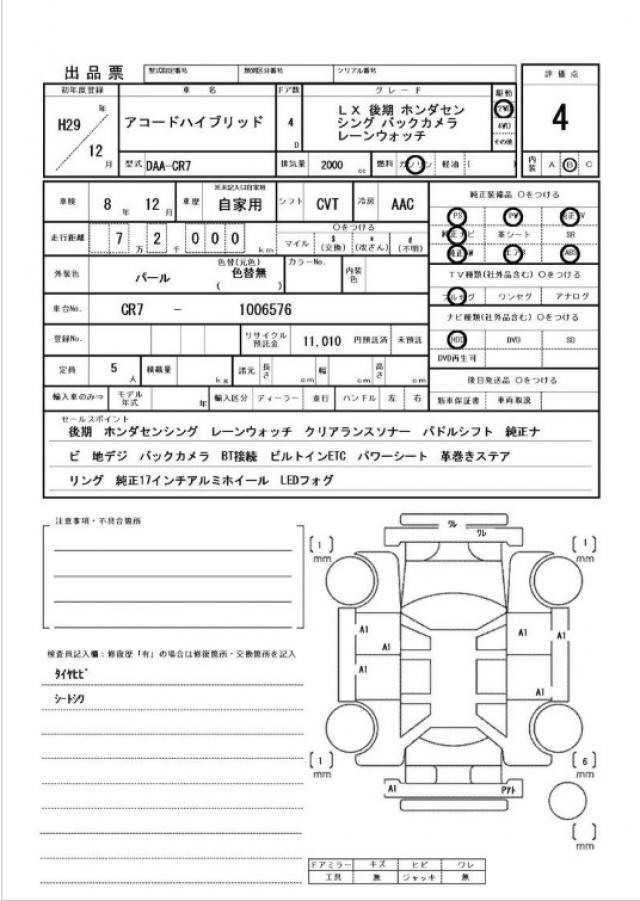 出品票 型式指定番号 類別区分番号 シリアル番号
評価点
4
内装 A B C
初年度登録 車名 ドア数 グレード 駆動
H29年 12月
アコードハイブリッド
4 D
LX 後期 ホンダセン
シング バックカメラ
レーンウォッチ
2WD
4WD
その他
型式 DAA-CR7 排気量 2000 cc 燃料 ガソリン 軽油 ( )
車検 8年 12月 車歴 自家用 シフト CVT 冷房 AAC
走行距離 7万 2千 000 km
○をつける
マイル $(交換) *(改ざん) #(不明)
外装色 パール 色替(元色) 色替無 ( ) カラーNo. 内装色
車台No. CR7 - 1006576
登録No. リサイクル預託金 11,010 円預託済 未預託
定員 5人 積載量 kg 諸元 長さ cm 幅 cm 高さ cm
輸入車のみ⇒ モデル年式 年 輸入区分 ディーラー 並行 ハンドル 左 右
純正装備品 ○をつける
PS PW
革シート SR
エアB ABS
TV種類(社外品含む) ○をつける
フルセグ ワンセグ アナログ
ナビ種類(社外品含む) ○をつける
HDD DVD SD
DVD再生可
後日発送品 ○をつける
新車保証書 車両取説
セールスポイント
後期 ホンダセンシング レーンウォッチ クリアランスソナー パドルシフト 純正ナ
ビ 地デジ バックカメラ BT接続 ビルトインETC パワーシート 革巻きステア
リング 純正17インチアルミホイール LEDフォグ
注意事項・不具合箇所
検査員記入欄：修復歴「有」の場合は修復箇所・交換箇所を記入
ﾀｲﾔﾋﾋﾞ
ｼｰﾄｼﾜ
ﾜﾚ
ﾜﾚ
[ 1 ] mm
[ 1 ] mm
A1 A1 A1
A1 A1
[ 1 ] mm
[ 6 ] mm
A1 Pｱﾄ
[ ] mm
ドアミラー キズ ヒビ ワレ
工具 無 ジャッキ 無